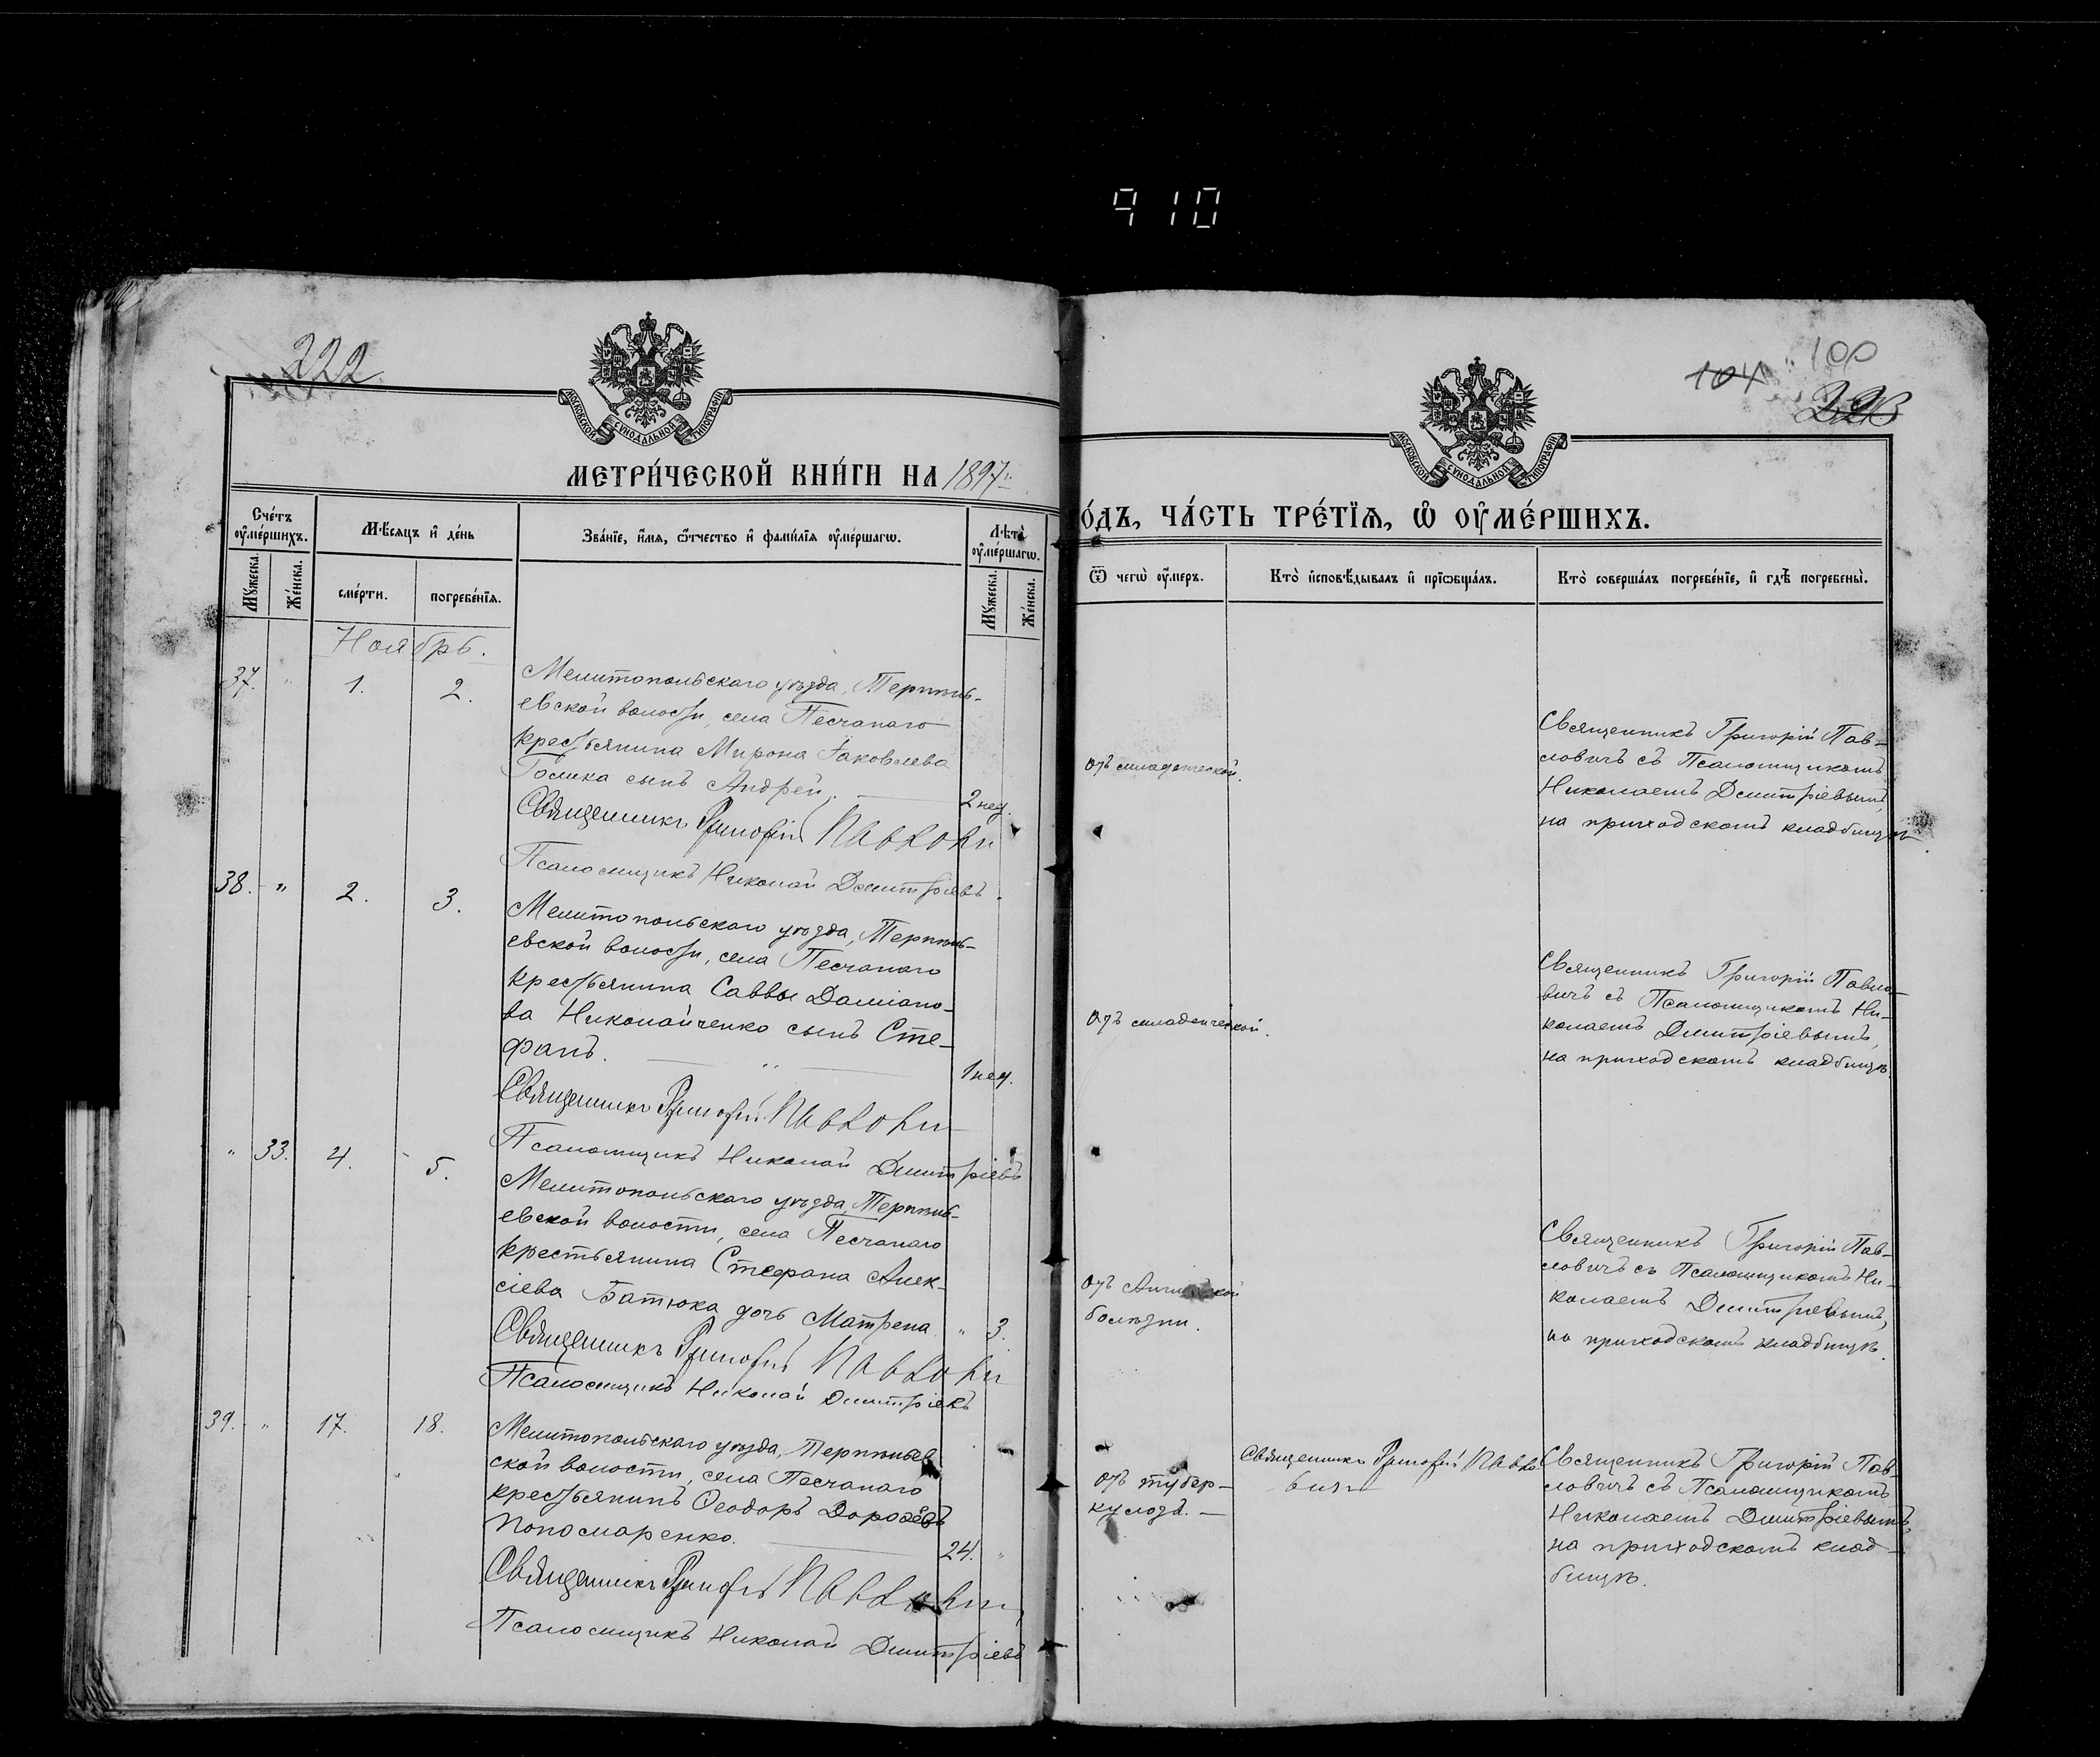 910
222
104 100
223
МОСКОВСКОЙ СѴНОДАЛЬНОЙ ТИПОГРАФІИ
МОСКОВСКОЙ СѴНОДАЛЬНОЙ ТИПОГРАФІИ
МЕТРИ́ЧЕСКОЙ КНИ́ГИ НА 1897
О́ДЪ, ЧА́СТЬ ТРЕ́ТЇѦ, Ѽ ОУ҆МЕ́РШИХЪ.
Сче́тъ оу҆ме́ршихъ.
Мꙋ́жеска.
Же́нска.
Мѣ́сѧцъ и҆ де́нь
сме́рти.
погребе́нїѧ.
Зва́нїе, и҆́мѧ, ѻ҆́тчество и҆ фами́лїѧ оу҆ме́ршагѡ.
Лѣ́та оу҆ме́ршагѡ.
Мꙋ́жеска.
Же́нска.
Ѿ чегѡ̀ оу҆́меръ.
Кто̀ и҆сповѣ́дывалъ и҆ прїѡбща́лъ.
Кто̀ соверша́лъ погребе́нїе, и҆ гдѣ̀ погребены̀.
Ноябрь.
37. " 1. 2.
Мелитопольскаго уѣзда, Терпень-
евской волости, села Песчанаго
крестьянина Мирона Іаковлева
Голика сынъ Андрей.
2 нед.
Священникъ Григорій Павлови
Псаломщикъ Николай Дмитріевъ.
отъ младенческой.
Священникъ Григорій Пав-
ловичъ съ Псаломщикомъ
Николаемъ Дмитріевымъ,
на приходскомъ кладбищѣ.
38. " 2. 3.
Мелитопольскаго уѣзда, Терпень-
евской волости, села Песчанаго
крестьянина Саввы Даміано-
ва Николайченко сынъ Сте-
фанъ.
1 нед.
Священникъ Григорій Павлови
Псаломщикъ Николай Дмитріевъ
отъ младенческой.
Священникъ Григорій Павло-
вичъ съ Псаломщикомъ Ни-
колаемъ Дмитріевымъ,
на приходскомъ кладбищѣ.
" 33. 4. 5.
Мелитопольскаго уѣзда, Терпень-
евской волости, села Песчанаго
крестьянина Стефана Алек-
сіева Батюка дочь Матрена
" 3.
Священникъ Григорій Павлови
Псаломщикъ Николай Дмитріевъ
отъ
болѣзни.
Священникъ Григорій Пав-
ловичъ съ Псаломщикомъ Ни-
колаемъ Дмитріевымъ,
на приходскомъ кладбищѣ.
39. " 17. 18.
Мелитопольскаго уѣзда, Терпеньев-
ской волости, села Песчанаго
крестьянинъ Ѳеодоръ Дороѳеевъ
Пономаренко.
24. "
Священникъ Григорій Павлови
Псаломщикъ Николай Дмитріевъ
отъ тубер-
кулоза.
Священникъ Григорій Павло-
вичъ
Священникъ Григорій Пав-
ловичъ съ Псаломщикомъ
Николаемъ Дмитріевымъ,
на приходскомъ клад-
бищѣ.